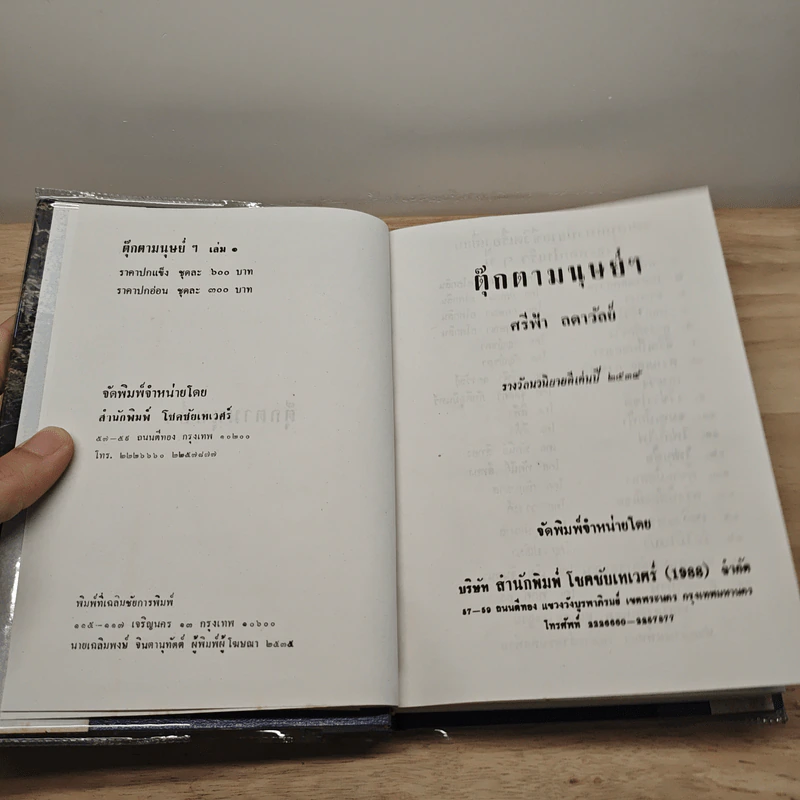 ตุ๊กตามนุษย์ ๆ เล่ม ๑
ราคาปกแข็ง ชุดละ ๖๐๐ บาท
ราคาปกอ่อน ชุดละ ๓๐๐ บาท
จัดพิมพ์จำหน่ายโดย
สำนักพิมพ์ โชคชัยเทเวศร์
๕๗—๕๙ ถนนตีทอง กรุงเทพ ๑๐๒๐๐
โทร. ๒๒๒๖๖๖๐ ๒๒๕๗๘๗๗
พิมพ์ที่เฉลิมชัยการพิมพ์
๑๑๕—๑๑๗ เจริญนคร ๑๓ กรุงเทพ ๑๐๖๐๐
นายเฉลิมพงษ์ จินตานุทัตต์ ผู้พิมพ์ผู้โฆษณา ๒๕๓๕
ตุ๊กตามนุษย์ๆ
ศรีฟ้า ลดาวัลย์
รางวัลนวนิยายดีเด่นปี
จัดพิมพ์จำหน่ายโดย
บริษัท สำนักพิมพ์ โชคชัยเทเวศร์ (1988) จำกัด
57—59 ถนนตีทอง แขวงวังบูรพาภิรมย์ เขตพระนคร กรุงเทพมหานคร
โทรศัพท์ 2226660—2257877